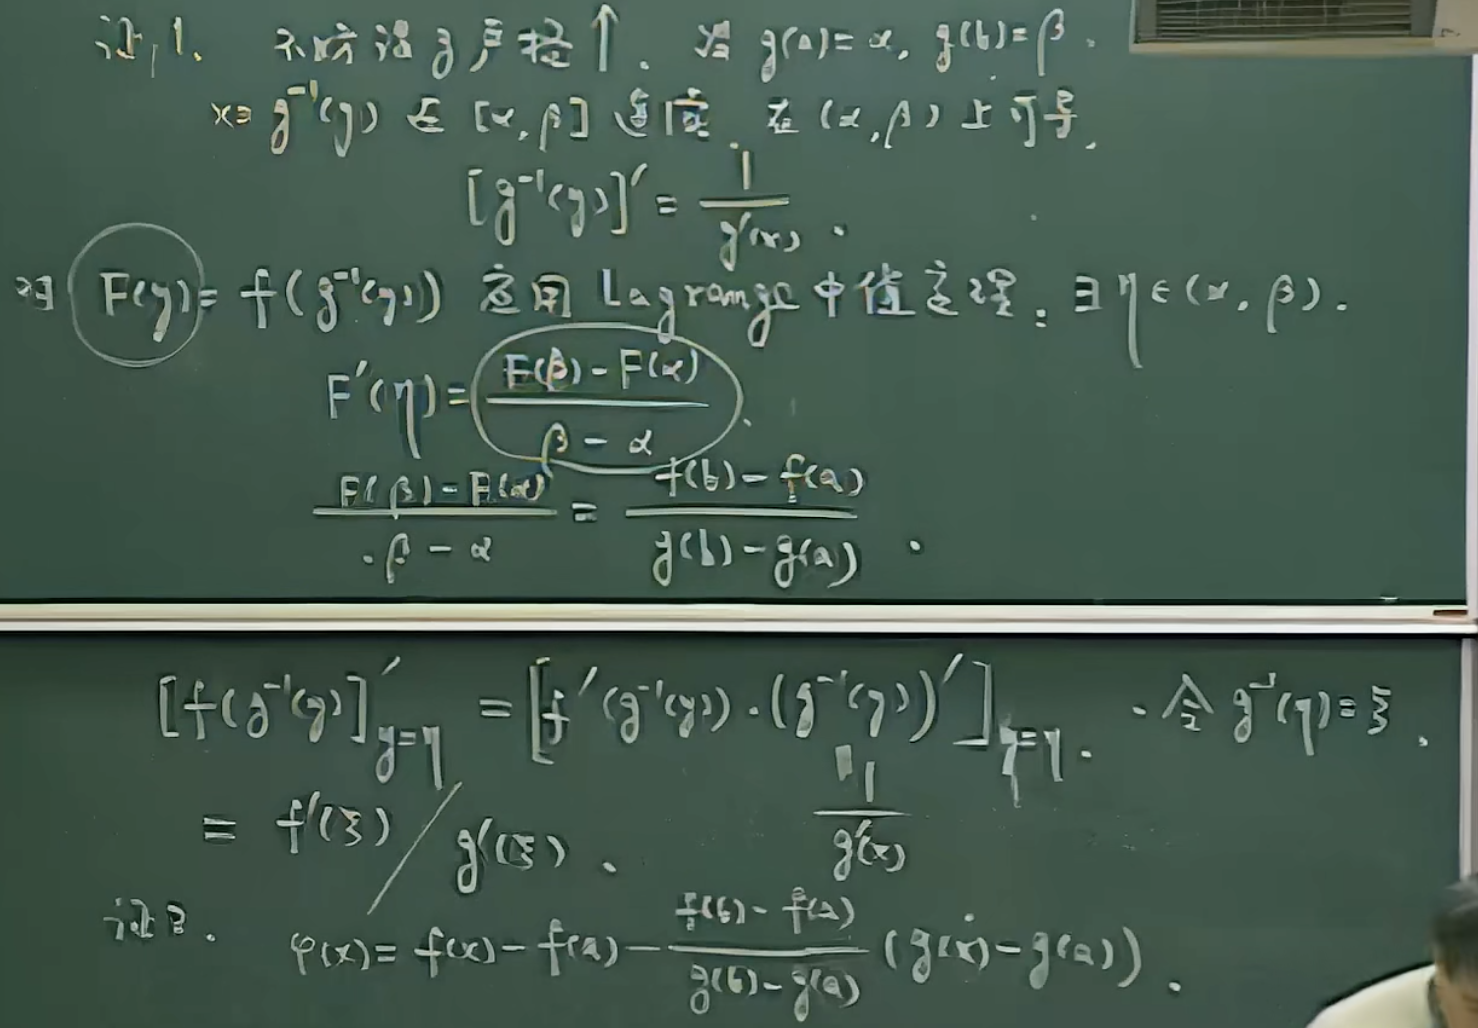 证1. 不妨设 g 严格↑. 设 g(a)=α, g(b)=β.
x=g⁻¹(y) 在 [α,β] 连续 在 (α,β) 上可导.
[g⁻¹(y)]′ = 1/g′(x).
对 F(y)=f(g⁻¹(y)) 应用 Lagrange 中值定理: ∃η∈(α,β).
F′(η)=(F(β)-F(α))/(β-α).
(F(β)-F(α))/(β-α) = (f(b)-f(a))/(g(b)-g(a)).
[f(g⁻¹(y)]′_{y=η} = [f′(g⁻¹(y))·(g⁻¹(y))′]_{y=η}. 令 g⁻¹(η)=ξ.
= f′(ξ)/g′(ξ). 1/g′(x)
证2. φ(x)=f(x)-f(a)-(f(b)-f(a))/(g(b)-g(a)) (g(x)-g(a)).